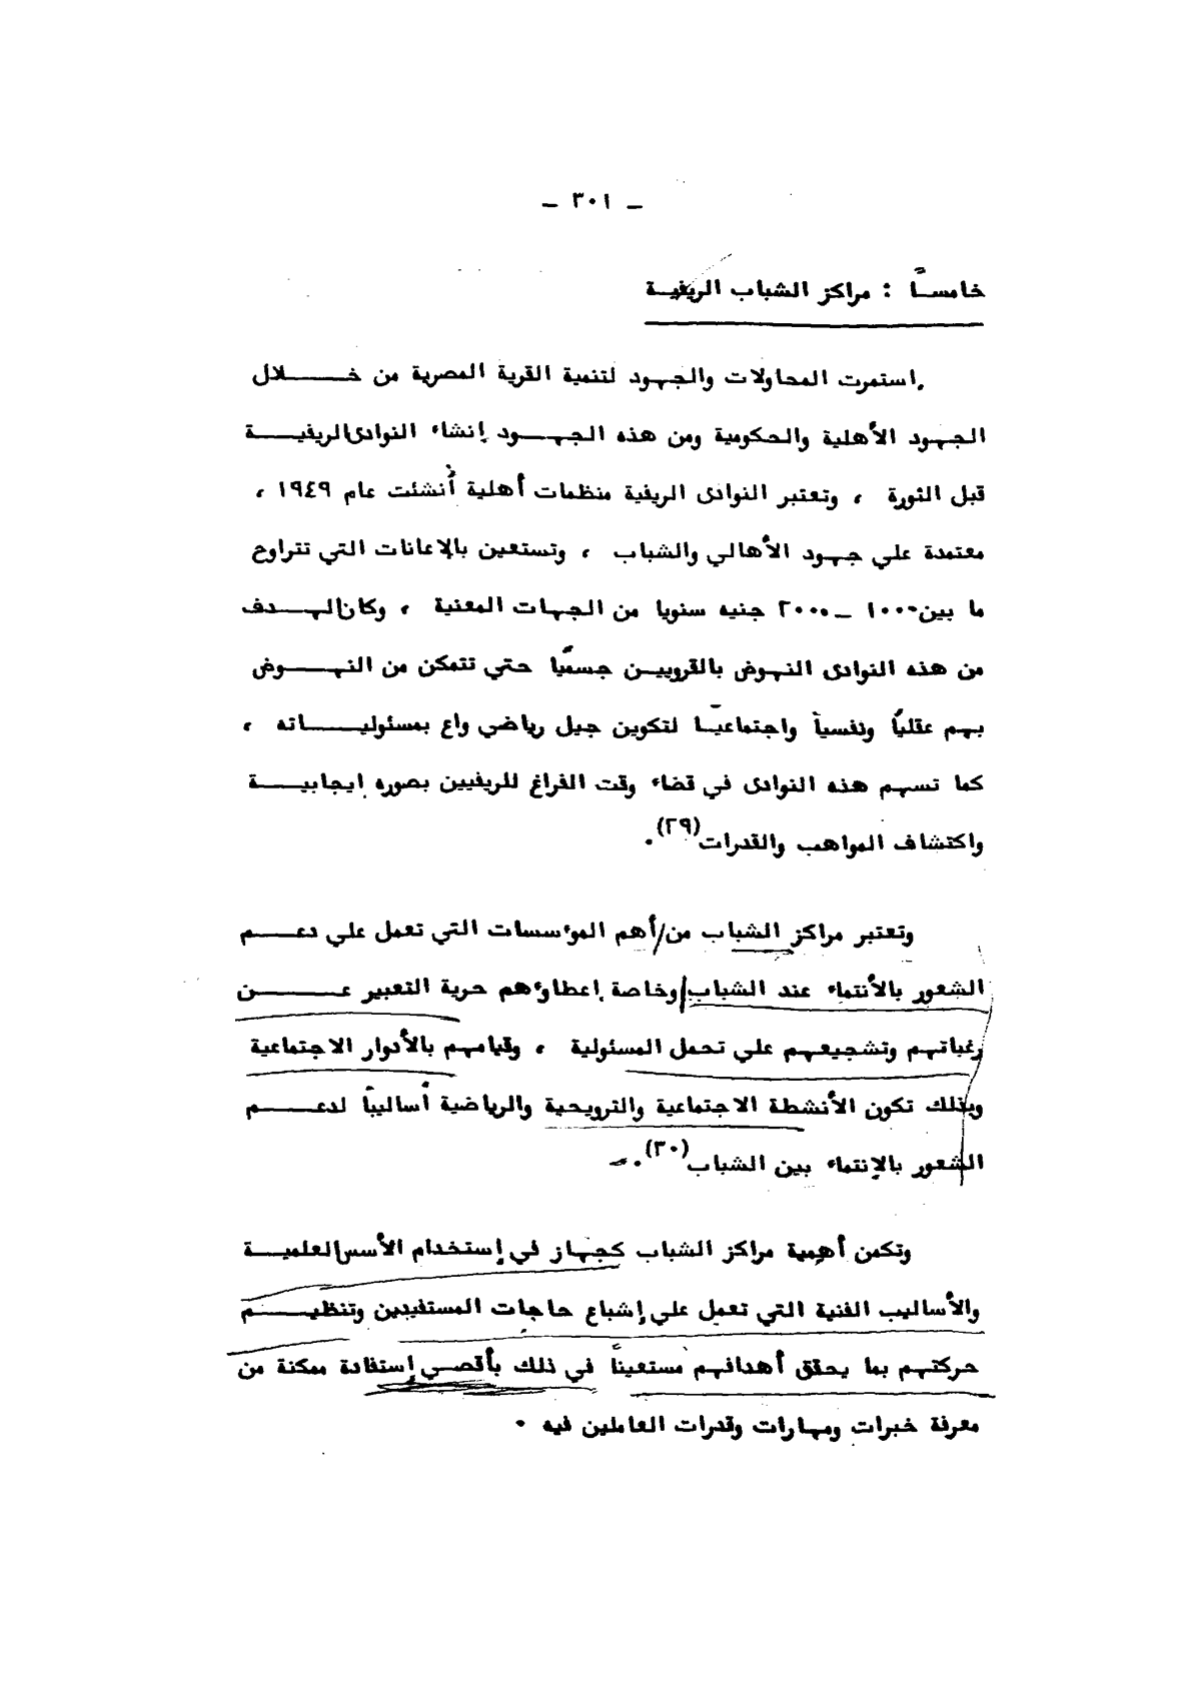 – ٣٠١ –
خامسـًا : مراكز الشباب الريفيـة
استمرت المحاولات والجهود لتنمية القرية المصرية من خـــــلال
الجهود الأهلية والحكومية ومن هذه الجهـــود إنشاء النوادى الريفيـــة
قبل الثورة ، وتعتبر النوادى الريفية منظمات أهلية أُنشئت عام ١٩٤٩ ،
معتمدة علي جهود الأهالي والشباب ، وتستعين بالإعانات التي تتراوح
ما بين ١٠٠٠ – ٢٠٠٠ جنيه سنويا من الجهات المعنية ، وكان الهـــدف
من هذه النوادى النهوض بالقرويـين جسميًا حتي تتمكن من النهـــوض
بهم عقليًا ونفسياً واجتماعيـًا لتكوين جيل رياضي واع بمسئوليـــاته ،
كما تسهم هذه النوادى في قضاء وقت الفراغ للريفيين بصوره إيجابيـــة
واكتشاف المواهب والقدرات(٢٩).
وتعتبر مراكز الشباب من أهم المؤسسات التي تعمل علي دعـــم
الشعور بالأنتماء عند الشباب وخاصة إعطاؤهم حرية التعبير عـــــن
رغباتهم وتشجيعهم علي تحمل المسئولية ، وقيامهم بالأدوار الاجتماعية
وبذلك تكون الأنشطة الاجتماعية والترويحية والرياضية أساليباً لدعـــم
الشعور بالإنتماء بين الشباب(٣٠).
وتكمن أهمية مراكز الشباب كجهاز في إستخدام الأسس العلميـــة
والأساليب الفنية التي تعمل علي إشباع حاجات المستفيدين وتنظيـــم
حركتهم بما يحقق أهدافهم مستعيناً في ذلك بأقصـي إستفادة ممكنة من
معرفة خبرات ومهارات وقدرات العاملين فيه .